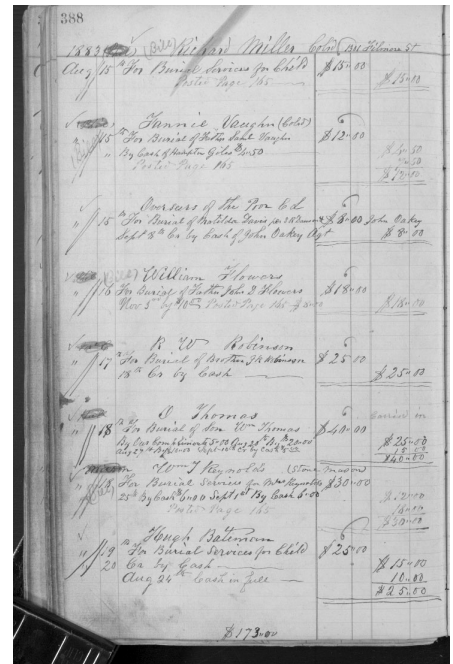 388
1883 (Bill) Richard Miller Col'd Bre Filmore St
Aug 15th For Burial Services for Child $15.00
Posted Page 165 $15.00
Fannie Vaughn (Col'd)
15th For Burial of Father Vaughn $12.00
" By Cash of Hampton Giles $4.50 $4.50
Posted Page 165 7.50
$12.00
Overseers of the Poor
" 15th For Burial of Matilda Davis $8.00 John Oakey
Sept 8th Cr by Cash of John Oakey Agt $8.00
(Bill) William Flowers
" 16 For Burial of Father John Flowers $18.00
Nov 5th Posted Page 165 $18.00
R W Robinson
" 17th For Burial of Brother Robinson $25.00
18th Cr by Cash $25.00
D Thomas
" 18th For Burial of Son Wm Thomas $40.00
By Our Compliments 5.00 Aug 20th By 20.00 $25.00
Aug 27th Sept 10th Cr by Cash 15.00
$40.00
Wm J Reynolds (Stone Mason
" 18 For Burial Services for Mrs Reynolds $30.00
25th By Cash 6.00 Sept 1st By Cash 6.00 $12.00
Posted Page 165 18.00
$30.00
Hugh Bateman
" 19 For Burial Services for Child $25.00
20 Cr by Cash $15.00
Aug 24th Cash in full 10.00
$25.00
$173.00